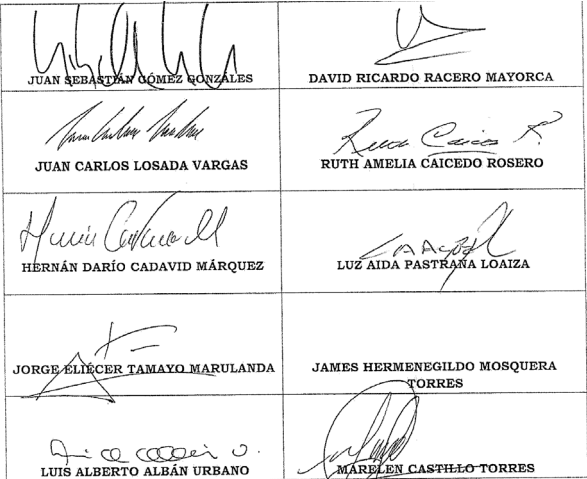 JUAN SEBASTIÁN GÓMEZ GONZÁLES
DAVID RICARDO RACERO MAYORCA
JUAN CARLOS LOSADA VARGAS
Ruth Caicedo R.
RUTH AMELIA CAICEDO ROSERO
HERNÁN DARÍO CADAVID MÁRQUEZ
LUZ AIDA PASTRANA LOAIZA
JORGE ELIÉCER TAMAYO MARULANDA
JAMES HERMENEGILDO MOSQUERA
TORRES
LUIS ALBERTO ALBÁN URBANO
MARELEN CASTILLO TORRES